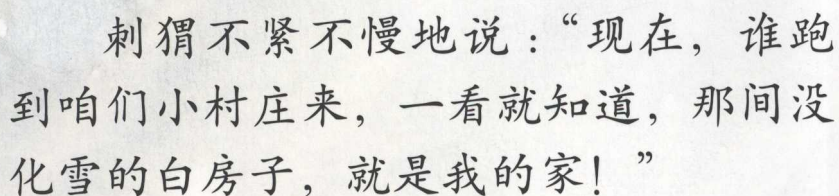 刺猬不紧不慢地说：“现在，谁跑
到咱们小村庄来，一看就知道，那间没
化雪的白房子，就是我的家！”